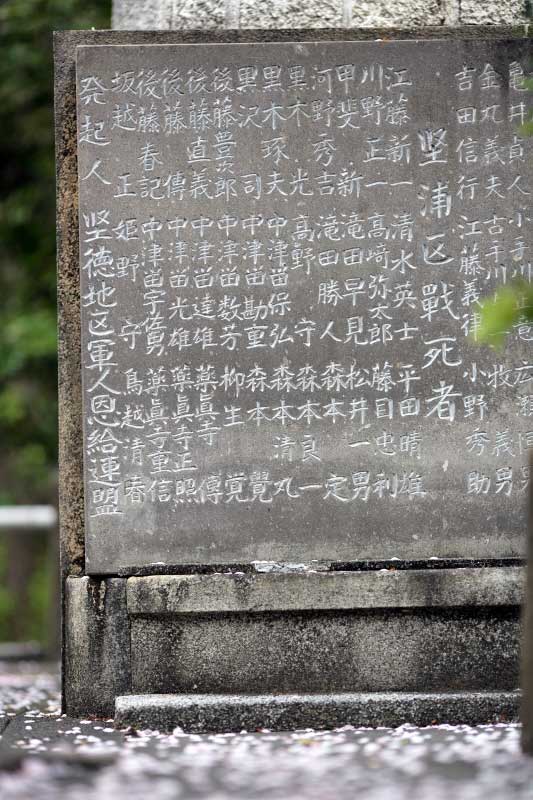 亀井貞人 小手川正竜
金丸義夫 古手川 牧 義男
吉田信行 江藤義律 小野秀助
堅浦区戰死者
江藤新一 清水英士 平田晴雄
川野正一 高崎弥太郎 藤目忠利
甲斐 新 滝田早見 松井一男
河野秀吉 滝田勝人 森本 定
黒木 光 高野 守 森本良一
黒木琢夫 中津留保弘 森本清丸
黒沢 司 中津留勘重 森本 覺
後藤豊次郎 中津留数芳 柳生 覚
後藤直義 中津留達雄 薬真寺 傳
後藤 傳 中津留光雄 薬眞寺正照
後藤春記 中津留宇佐男 薬真寺重信
坂越 正 姫野 守 鳥越清春
発起人 堅德地区軍人恩給連盟